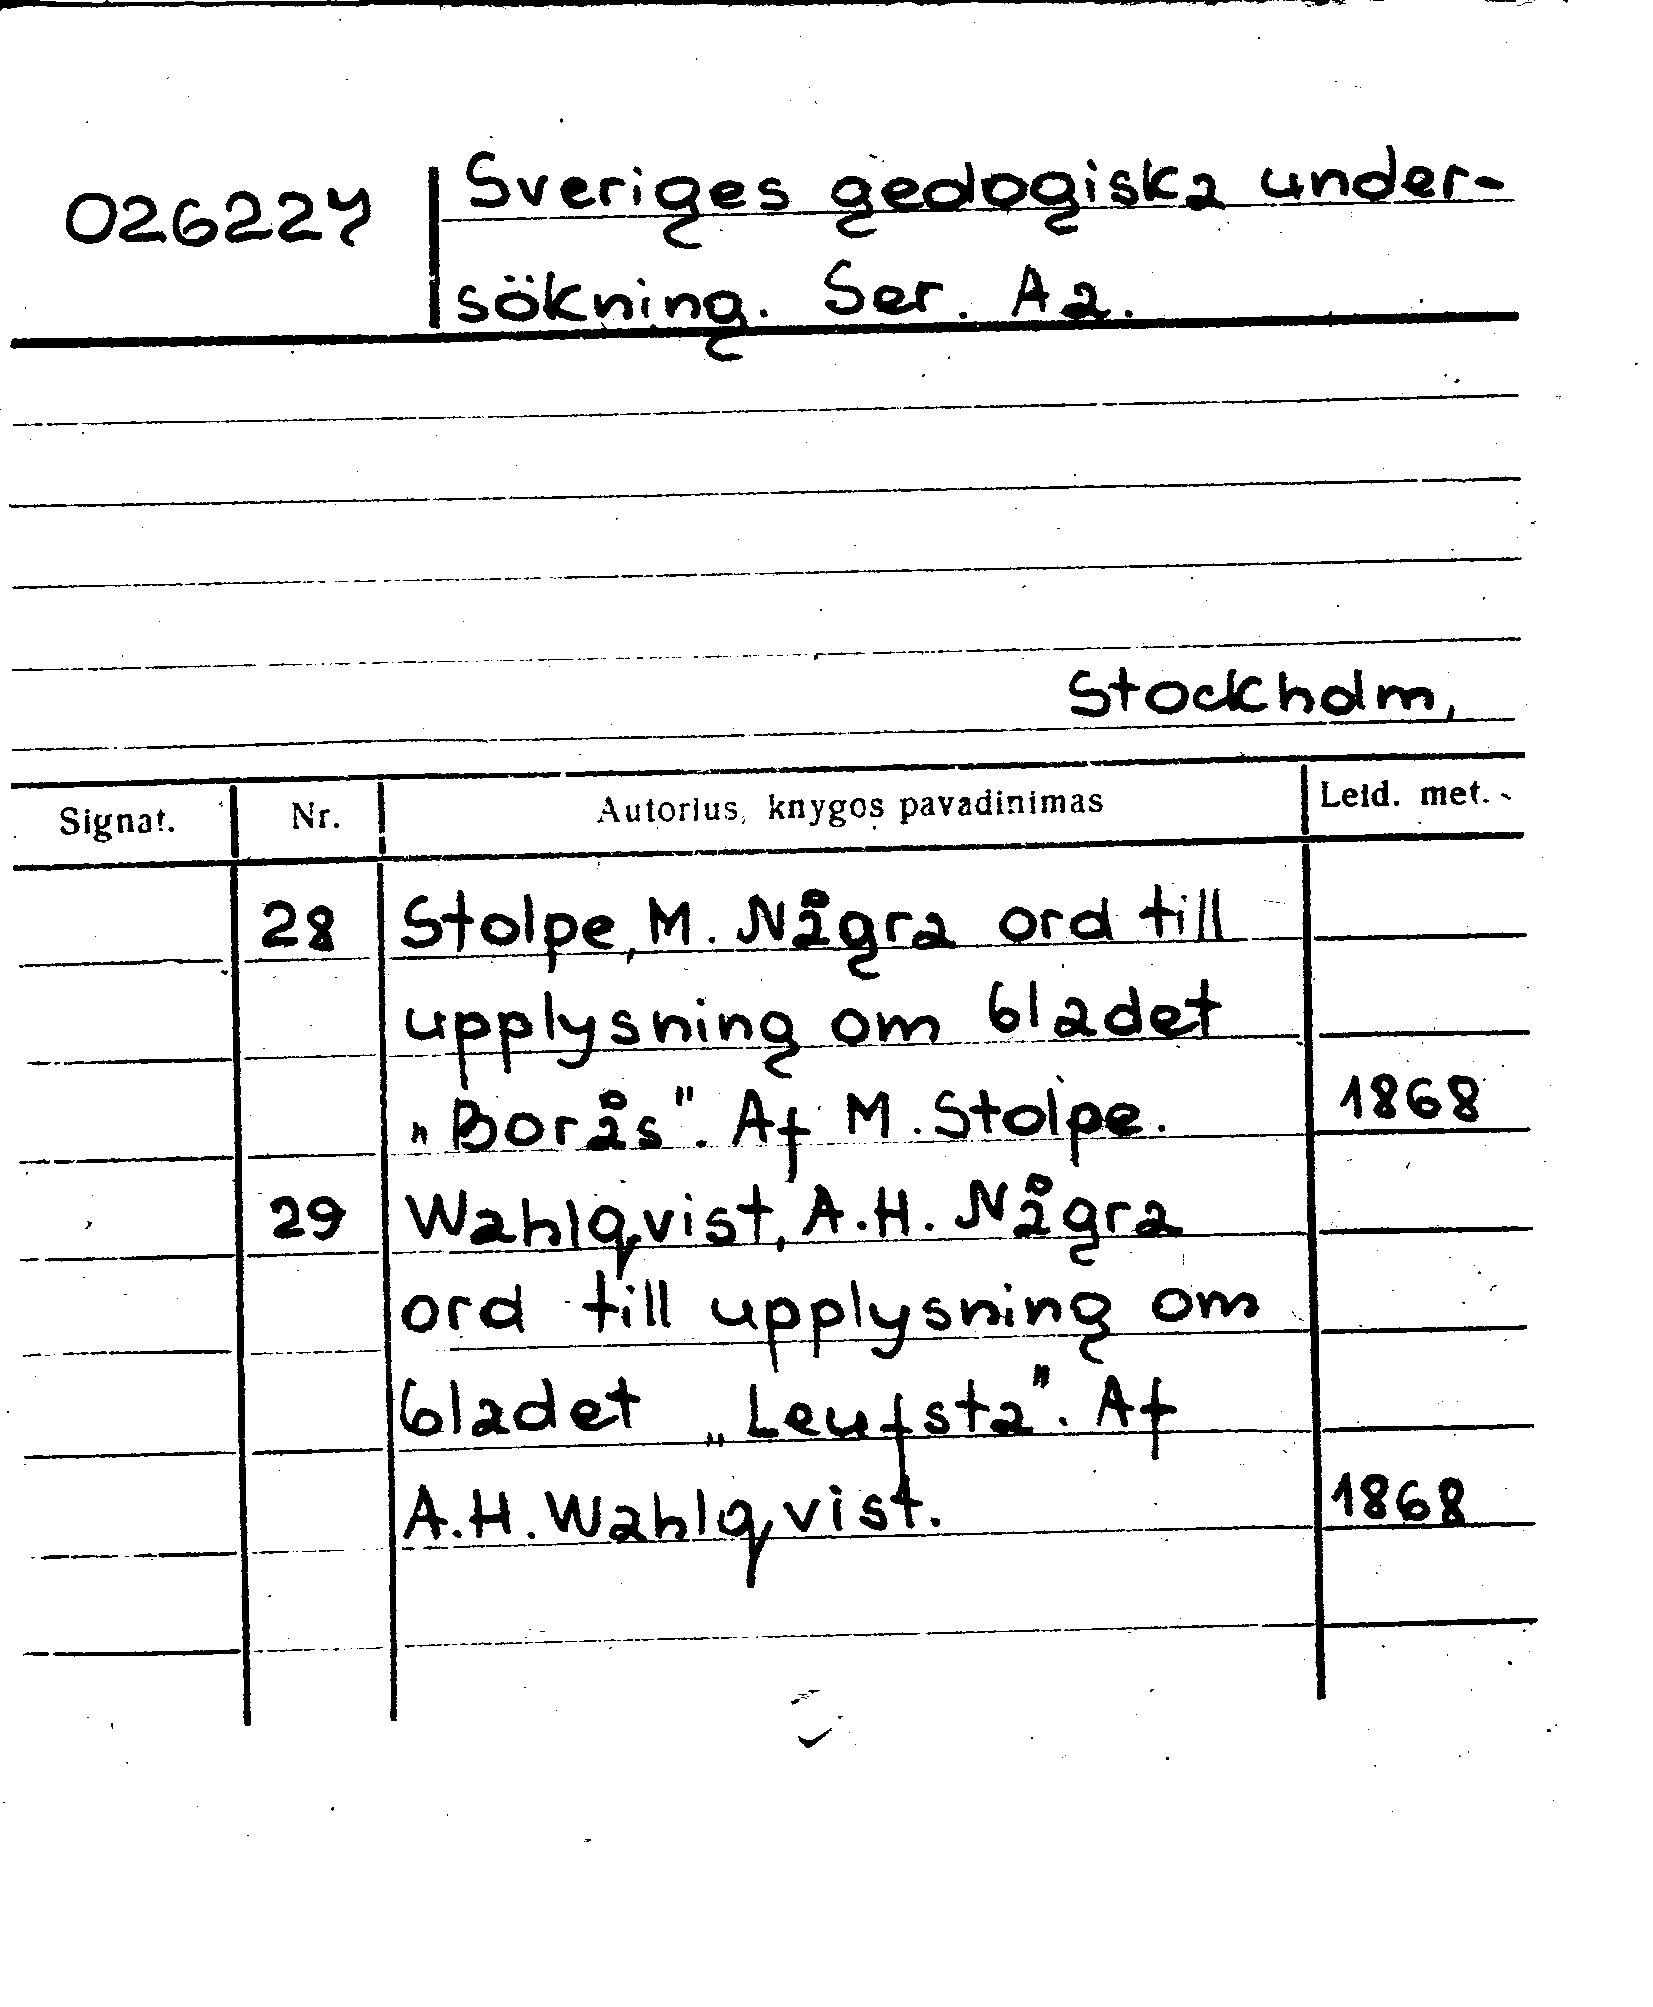 026227 Sveriges geologiska under-
sökning. Ser. Aa.
Stockholm,
Signat. Nr. Autorius, knygos pavadinimas Leid. met.
28 Stolpe, M. Några ord till
upplysning om bladet
„Borås". Af M. Stolpe. 1868
29 Wahlqvist, A.H. Några
ord till upplysning om
bladet „Leufsta". Af
A.H. Wahlqvist. 1868